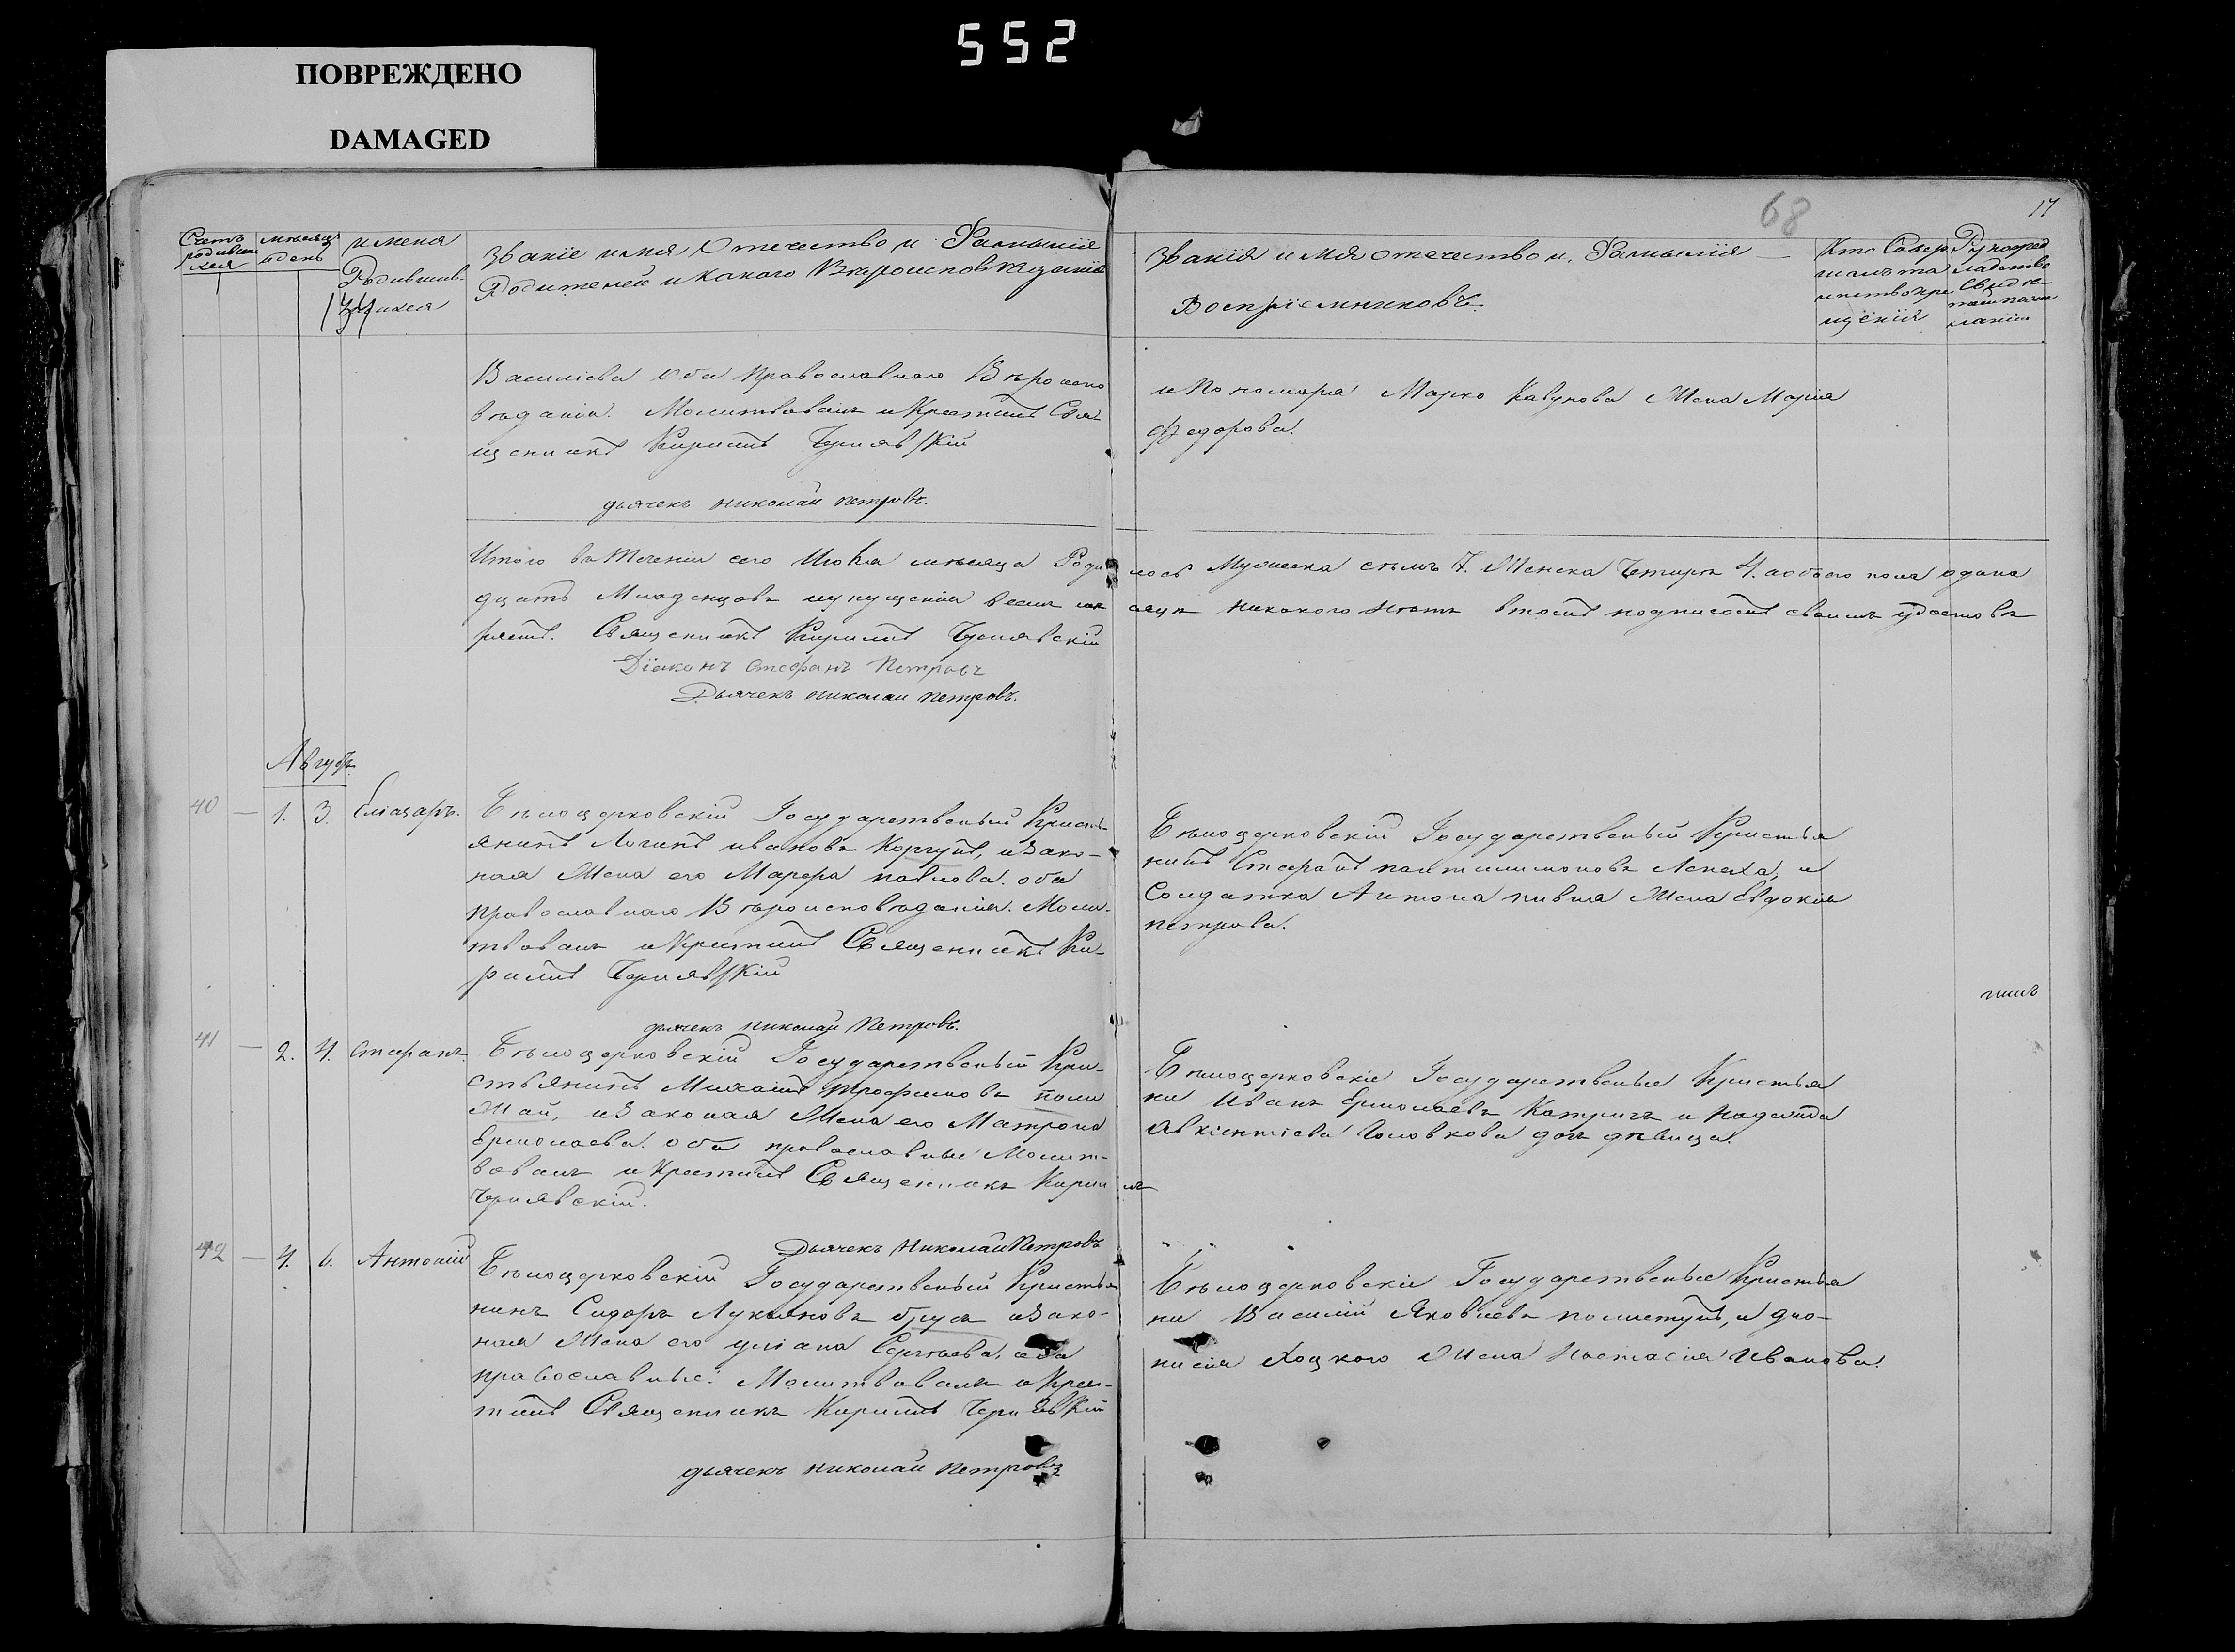 552
ПОВРЕЖДЕНО
DAMAGED
68
17
Счетъ родившихся
мѣсяцъ и день
имена Родившихся
Званіе имя Отечество и Фамиліе
Родителей и какого Вѣроисповѣданія
Званія имя отечество и Фамилія
Воспріемниковъ.
Кто Совершалъ таинство крещенія
Василіева оба православнаго Вѣроиспо
вѣданія. Молитвовалъ и Крестилъ Свя-
щенникъ Кирилъ Чернявскій
дьячекъ николай петровъ.
и Пономаря Марко Кавунова Жена Марія
Федорова.
Итого въ теченіи сего Июля мѣсяца Роди лось Мужеска семь 7. Женска Четыре 4. а обоего пола одина
дцать Младенцовъ никакого нѣтъ в томъ подписомъ своимъ удостовѣ
ряетъ. Священникъ Кирилъ Чернявскій
Діаконъ Стефанъ Петровъ
Дьячекъ николай петровъ.
Августъ
40 — 1. 3. Еліазаръ.
Бѣлоцерковскій Государственый Кристь-
янинъ Логинъ Ивановъ Коргутъ, и Зако-
ная Жена его Марфа павлова. оба
православнаго Вѣроисповѣданія. Моли-
твовалъ и Крестилъ Священникъ Ки-
рилъ Чернявскій
дьячекъ николай Петровъ.
Бѣлоцерковскій Государственый Кристья
нинъ Стефанъ пантилимоновъ Лепеха, и
Солдатка Антона Жена Евдокия
петрова.
41 — 2. 4. Стефанъ.
Бѣлоцерковскій Государственый Кри-
стьянинъ Михаилъ трофимовъ поли
Жай, и Законая Жена его Матрона
Ермолаева. оба православные Молит-
вовалъ и Крестилъ Священникъ Кирилъ
Чернявскій.
Дьячекъ Николай Петровъ
Бѣлоцерковскіе Государственые Кристья
ни Иванъ Ермолаевъ Катричъ и
Головкова дочь дѣвица.
42 — 4. 6. Антоній
Бѣлоцерковскій Государственый Кристья
нинъ Сидоръ Лукьяновъ брусъ и Зако-
ная Жена его уліана Сергѣева, оба
православные. Молитвовалъ и Кре-
тилъ Священникъ Кирилъ Чернявскій
дьячекъ николай петровъ
Бѣлоцерковскіе Государственые Кристья
ни Василій Яковлевъ и дио-
нисія Хоцкого Жена Настасія Иванова.